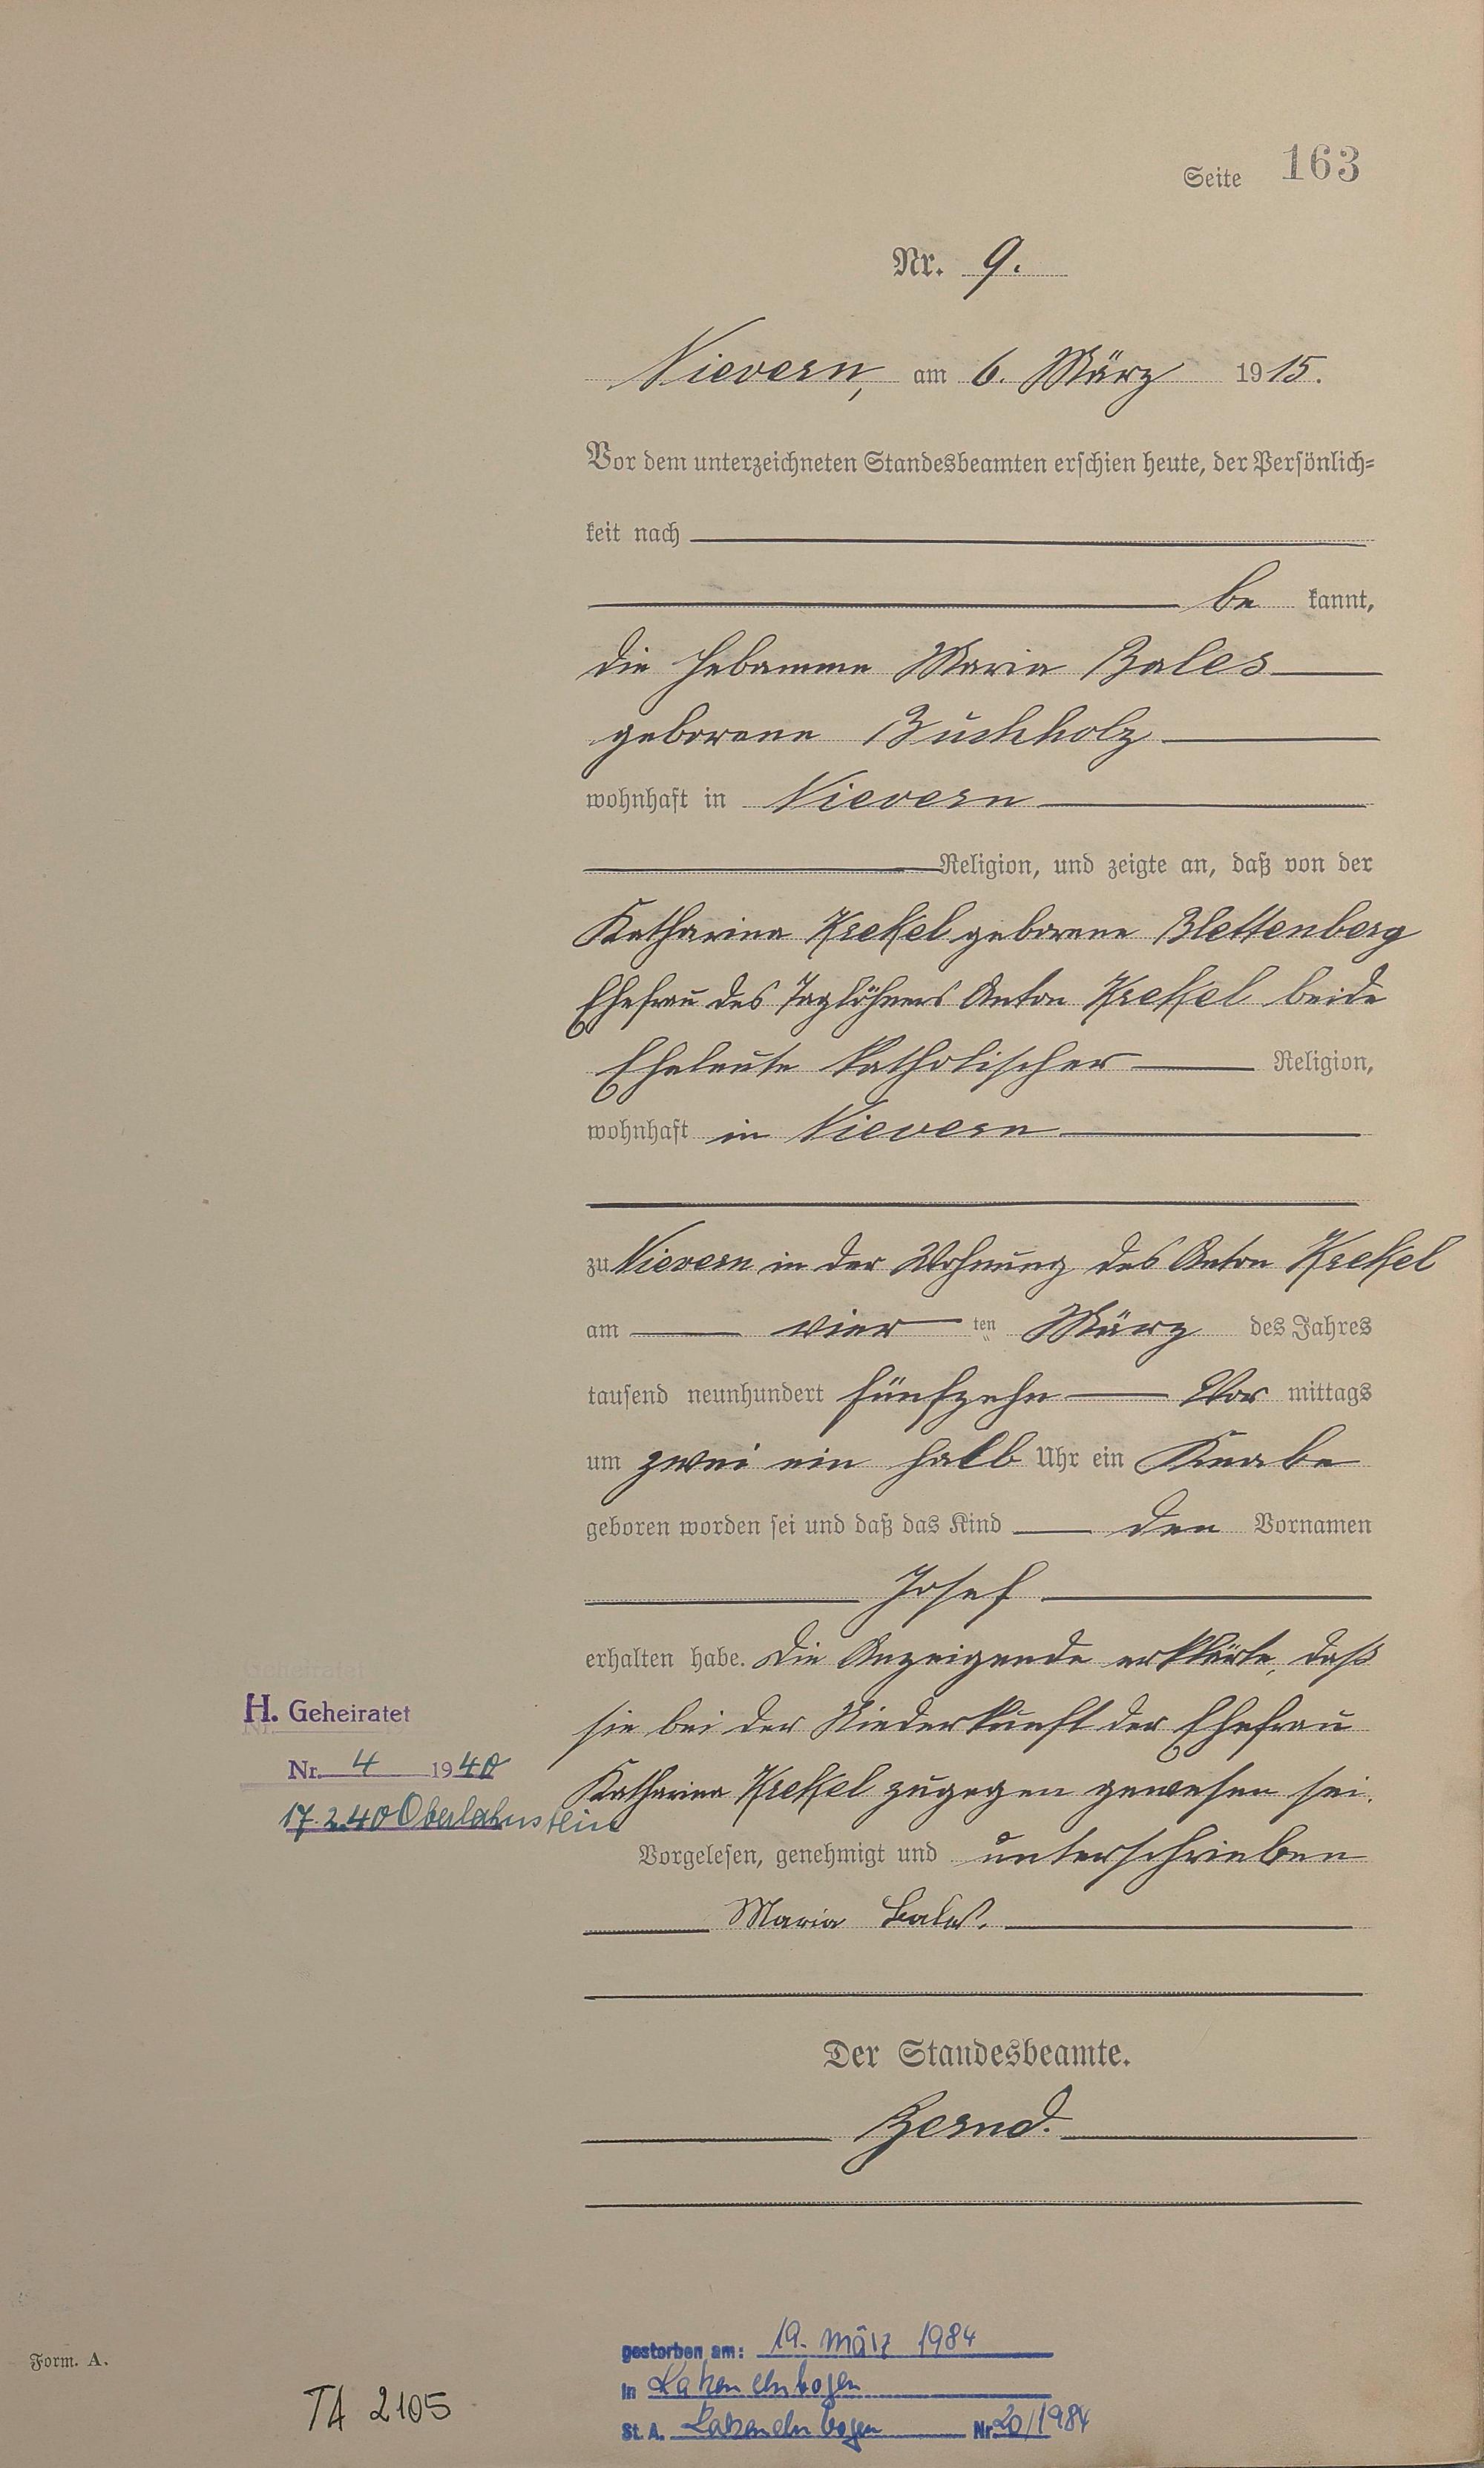 Seite 163
Nr. 9.
Nievern, am 6. März 1915.
Vor dem unterzeichneten Standesbeamten erschien heute, der Persönlich=
keit nach
be kannt,
die Hebamme Maria Bales
geborene Buchholz
wohnhaft in Nievern
Religion, und zeigte an, daß von der
Katharina Krekel geborene Blettenberg
Ehefrau des Taglöhners Anton Krekel beide
Eheleute katholischer Religion,
wohnhaft in Nievern
zu Nievern in der Wohnung des Anton Krekel
am vier ten März des Jahres
tausend neunhundert fünfzehn Vor mittags
um zwei ein halb Uhr ein Knabe
geboren worden sei und daß das Kind den Vornamen
Josef
erhalten habe. Die Anzeigende erklärte, daß
sie bei der Niederkunft der Ehefrau
Katharina Krekel zugegen gewesen sei.
Vorgelesen, genehmigt und unterschrieben
Maria Bales.
Der Standesbeamte.
Bernd.
H. Geheiratet
Nr. 4 1940
17.2.40 Oberlahnstein
gestorben am: 19. März 1984
in Katzenelnbogen
St. A. Katzenelnbogen Nr. 20/1984
Form. A.
TA 2105